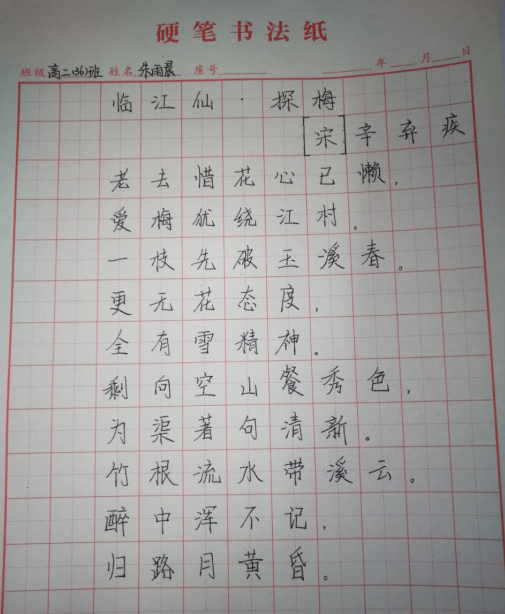 硬笔书法纸
班级 高二(36)班 姓名 朱雨晨 座号 年 月 日
临江仙·探梅
[宋]辛弃疾
老去惜花心已懒，
爱梅犹绕江村。
一枝先破玉溪春。
更无花态度，
全有雪精神。
剩向空山餐秀色，
为渠著句清新。
竹根流水带溪云。
醉中浑不记，
归路月黄昏。